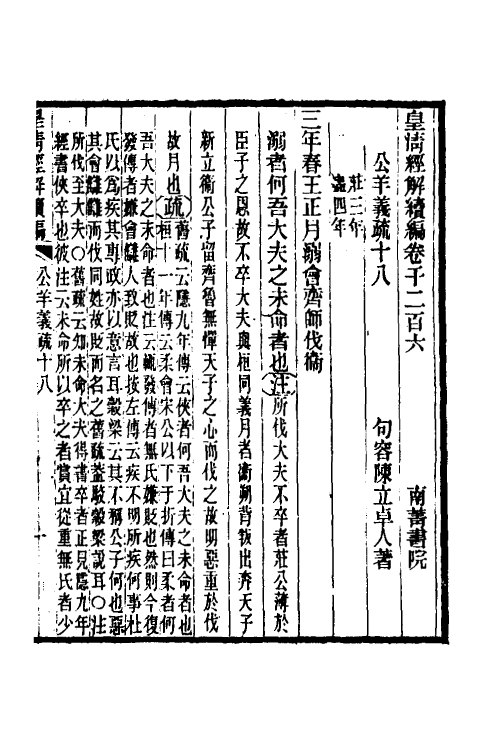 皇淸經解續編卷千二百六　南菁書院
公羊義疏十八　句容陳立卓人著
莊三年
盡四年
三年春王正月溺會齊師伐衞
溺者何吾大夫之未命者也注所伐大夫不卒者莊公薄於
臣子之恩故不卒大夫與桓同義月者衞朔背叛出奔天子
新立衞公子留齊魯無憚天子之心而伐之故明惡重於伐
故月也疏舊疏云隱九年傳云俠者何吾大夫之未命者也
桓十一年傳云柔會宋公以下于折傳曰柔者何
吾大夫之未命者也注云輒發傳者無氏嫌貶也然則今復
發傳者嫌會讎人致貶故也按左傳云疾不明所疾何事杜
氏以爲疾其專政亦以意言耳穀梁云其不稱公子何也惡
其會讎讎而伐同姓故貶而名之舊疏蓋駮穀梁說耳○注
所伐至大夫○舊疏云知未命大夫得書卒者正見隱九年
經書俠卒也彼注云未命所以卒之者賞宜從重無氏者少
皇淸經解續編　公羊義疏十八　一